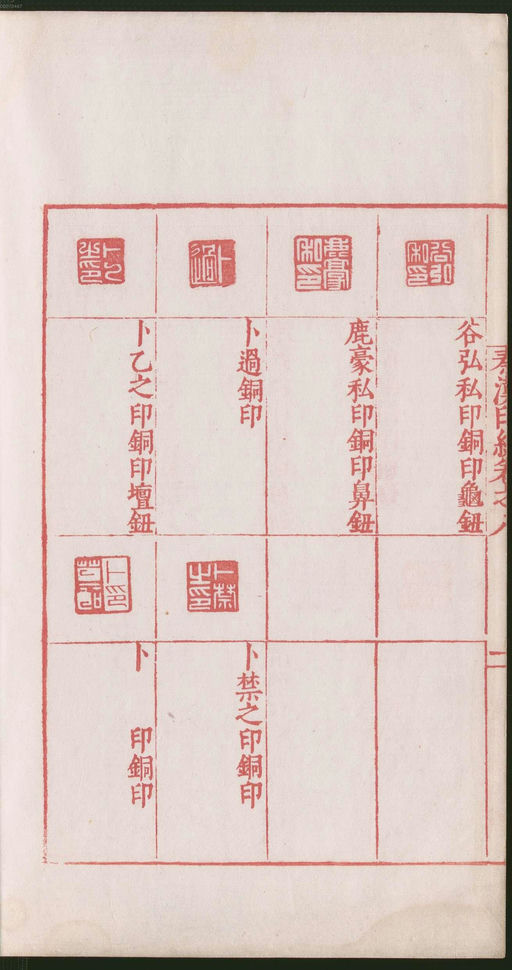 秦漢印統卷之八
二
谷弘私印銅印龜鈕
鹿豪私印銅印鼻鈕
卜過銅印
卜禁之印銅印
卜乙之印銅印壇鈕
卜 印銅印